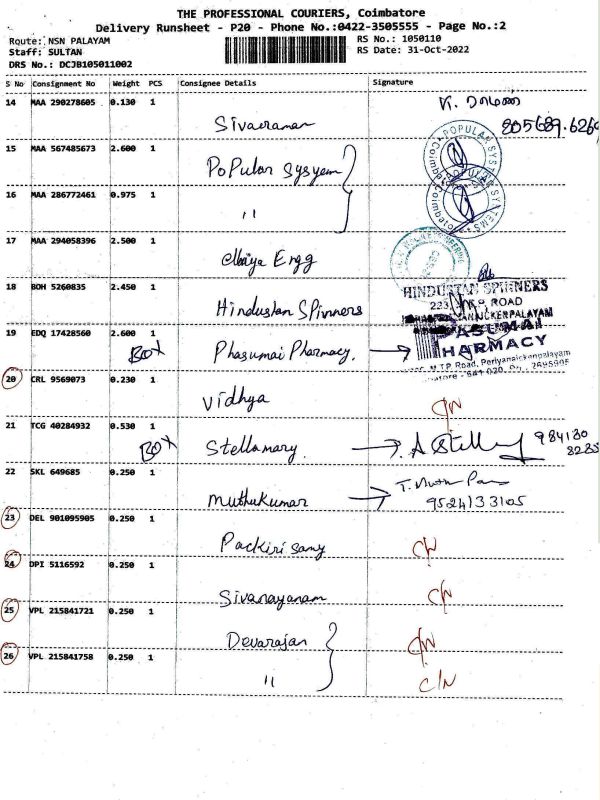 THE PROFESSIONAL COURIERS, Coimbatore
Delivery Runsheet - P20 - Phone No.:0422-3505555 - Page No.:2
Route: NSN PALAYAM
RS No.: 1050110
Staff: SULTAN
RS Date: 31-Oct-2022
DRS No.: DCJB105011002
S No Consignment No Weight PCS Consignee Details Signature
14 MAA 290278605 0.130 1
Sivaraman
15 MAA 567485673 2.600 1
PoPular Sysyem
POPULAR SYSTEMS
16 MAA 286772461 0.975 1
"
POPULAR SYSTEMS
17 MAA 294058396 2.500 1
Engg
18 BOH 5260835 2.450 1
Hindustan SPinners
HINDUSTAN SPINNERS
ROAD
19 EDQ 17428560 2.600 1
BOX Phasumai Pharmacy.
PASUMAI
PHARMACY
M.T.P. Road, Periyanaickenpalayam
20 CRL 9569073 0.230 1
Vidhya C/N
21 TCG 40284932 0.530 1
BOX Stellamary A Stella 984130
22 SKL 649685 0.250 1
Muthukumar 9524133105
23 DEL 901095905 0.250 1
Packirisamy C/N
24 DPI 5116592 0.250 1
Sivanayanam C/N
25 VPL 215841721 0.250 1
Devarajan C/N
26 VPL 215841758 0.250 1
" C/N